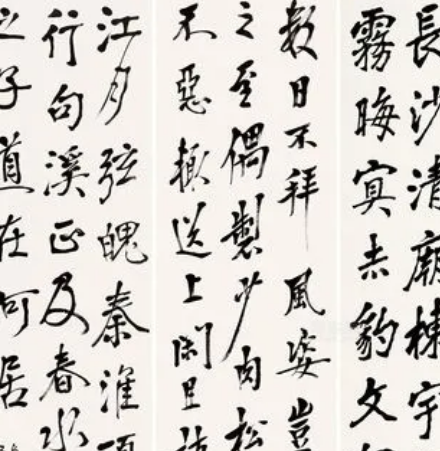 長沙清廟棟宇
霧晦冥赤豹文
數日不拜風姿豈
之至偶製少肉松
不惡輒送上閑且
江月弦魄秦淮
行句溪正及春水
之子道在何居